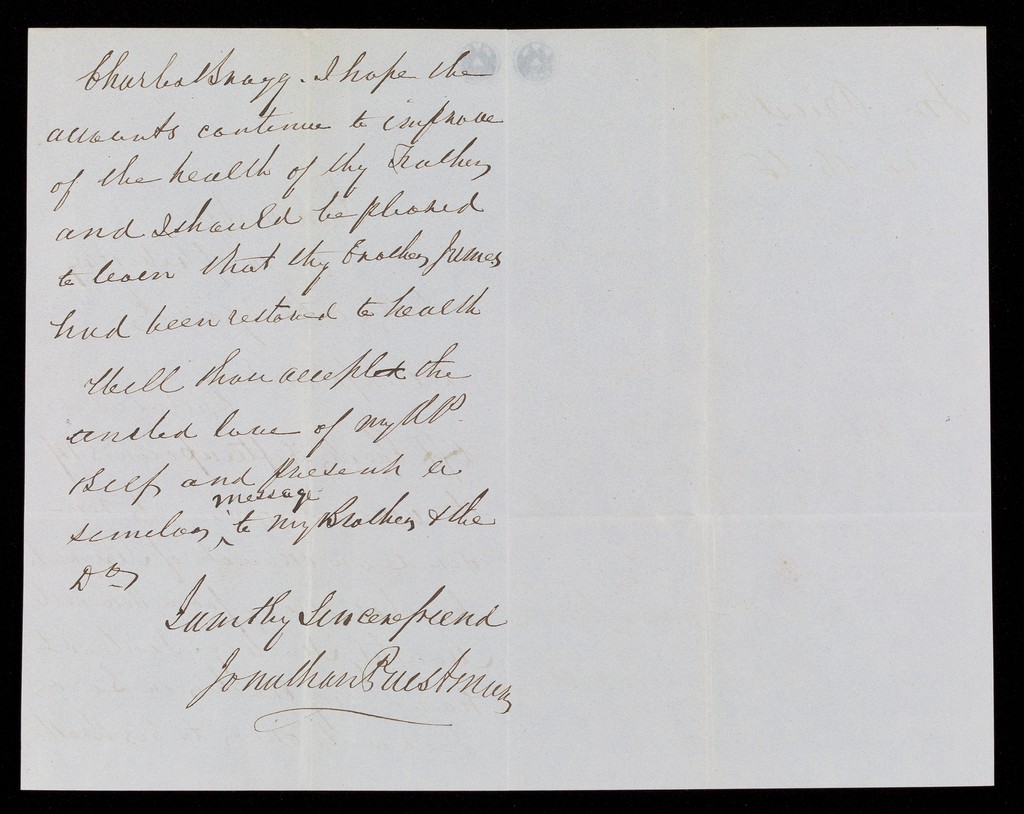 Charles Bragg. I hope the
accounts continue to improve
of the health of thy Father
and I should be pleased
to learn that thy Brother James
had been restored to health
Will thou accept the
united love of my RP.
self and present a
similar message to my Brother & the
Drs
I am thy Sincere friend
Jonathan Priestman